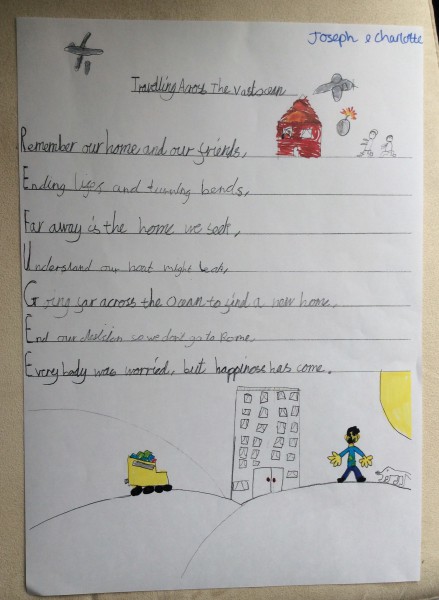 Joseph & Charlotte
Travelling Across The Vast ocean
Remember our home and our friends,
Ending lifes and turning bends,
Far away is the home we seek,
Understand our boat might leak,
Going far across the Ocean to find a new home,
End our decision so we don't go to Rome,
Everybody was worried, but happiness has come.